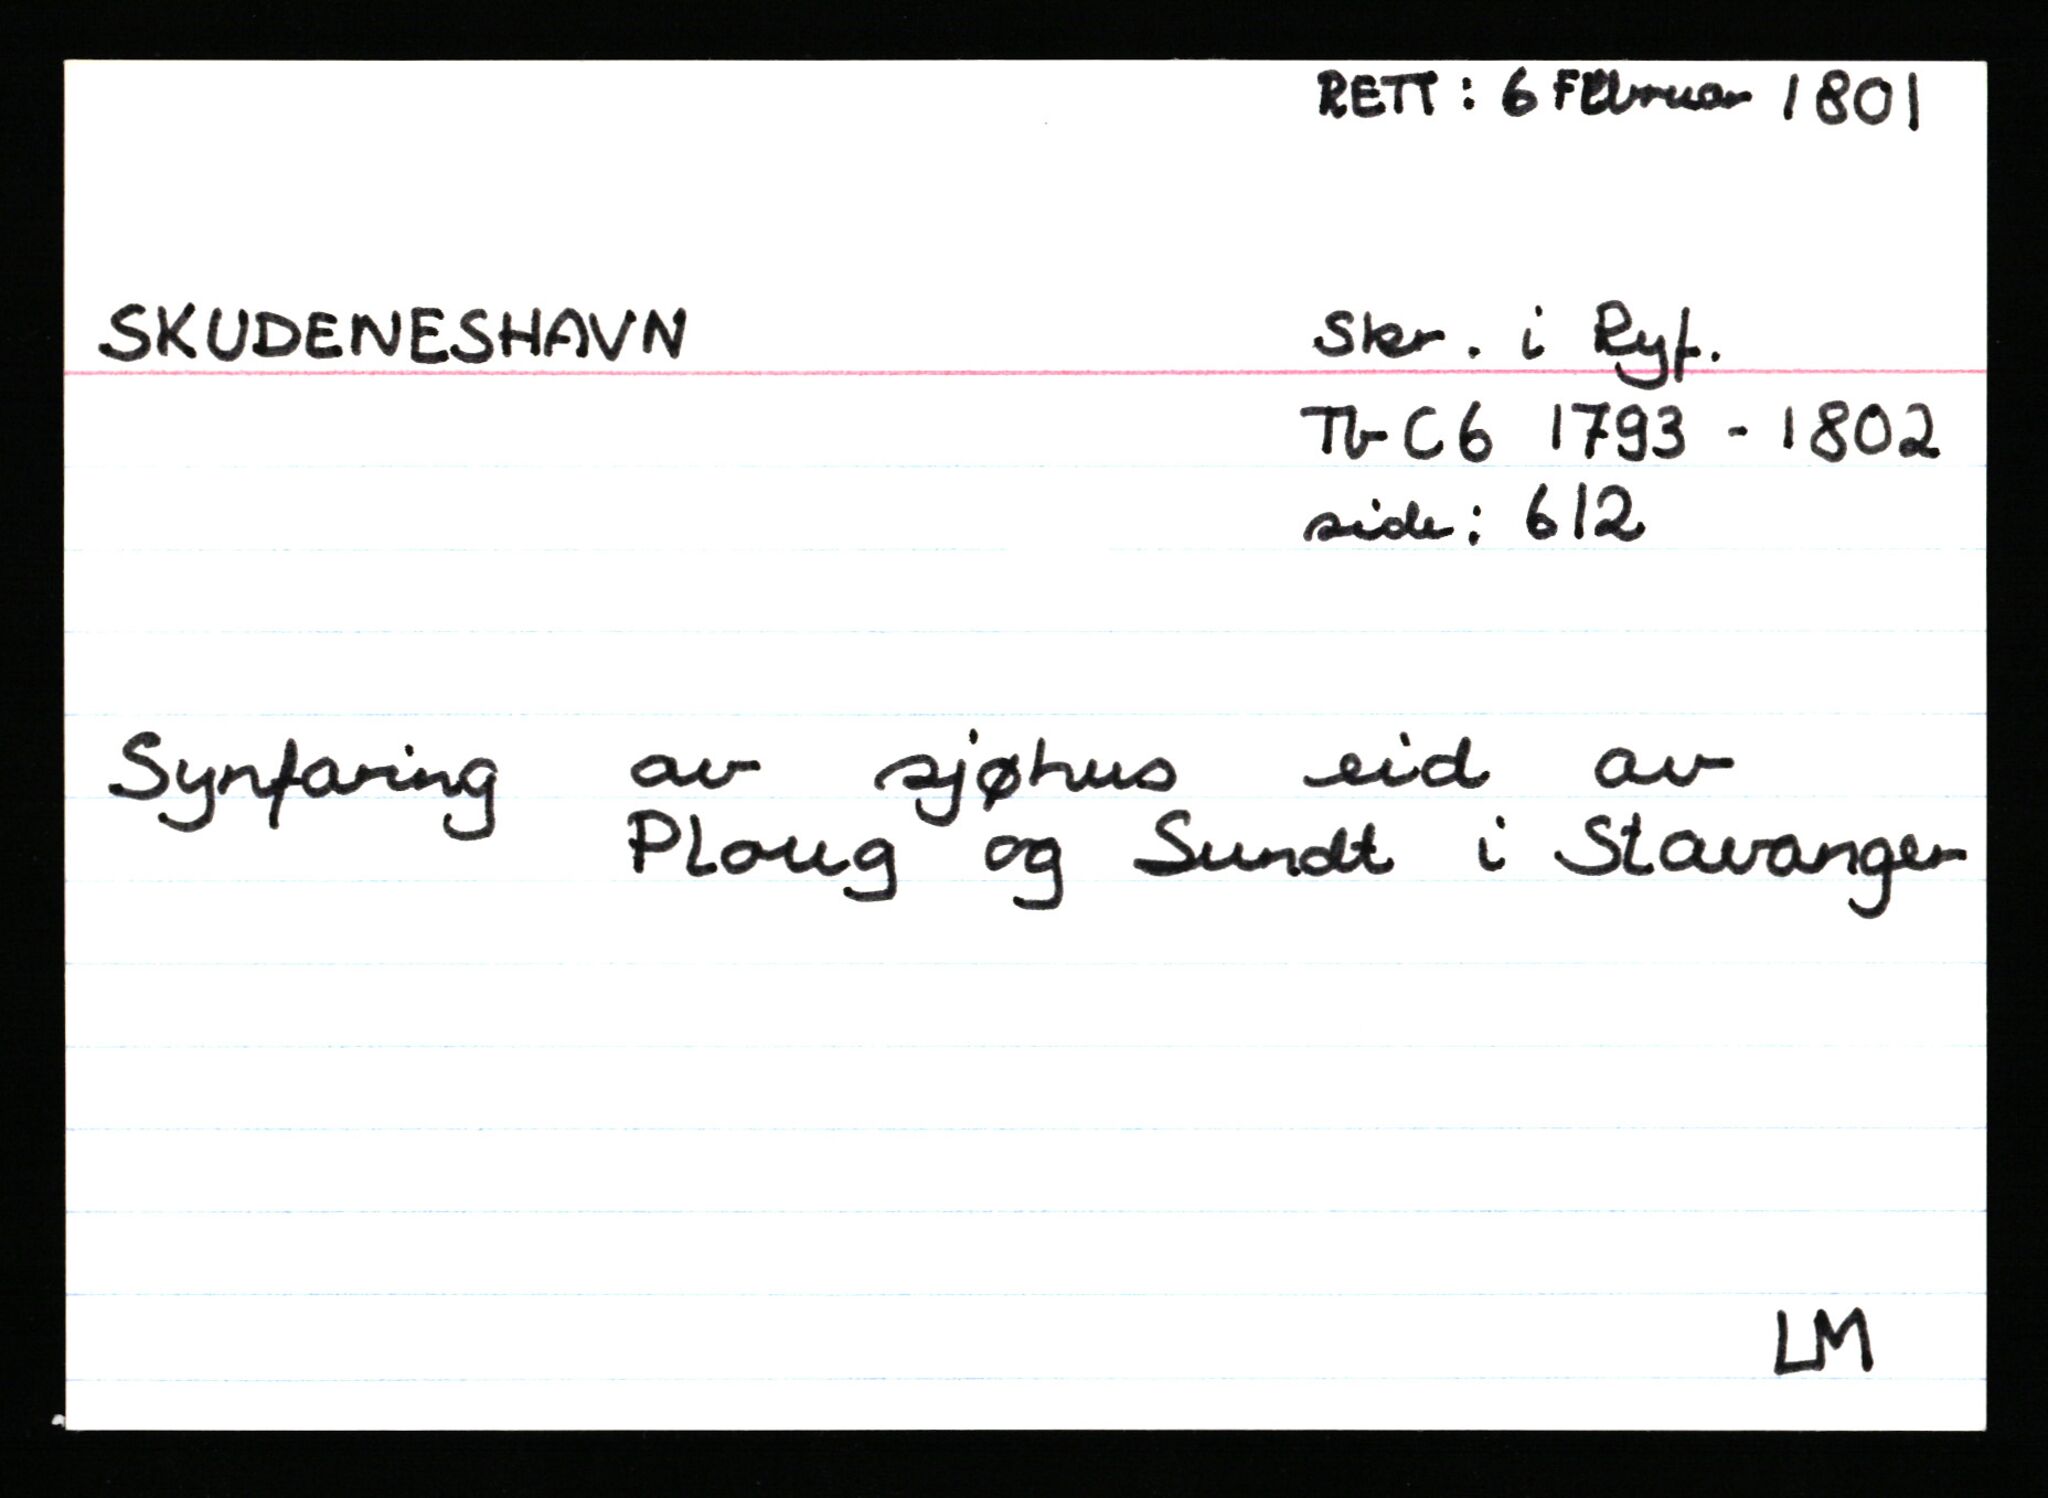 RETT: 6 Februar 1801
SKUDENESHAVN
Skr. i Ryf.
Tb C6 1793 - 1802
side: 612
Synfaring av sjøhus eid av
Ploug og Sundt i Stavanger
LM